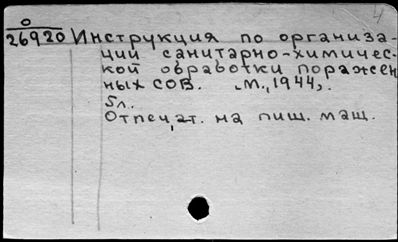 4
О
26920 Инструкция по организа-
ции санитарно-химичес-
кой обработки поражен
ных СОВ. М., 1944,.
5л.
Отпечат. на пиш. маш.